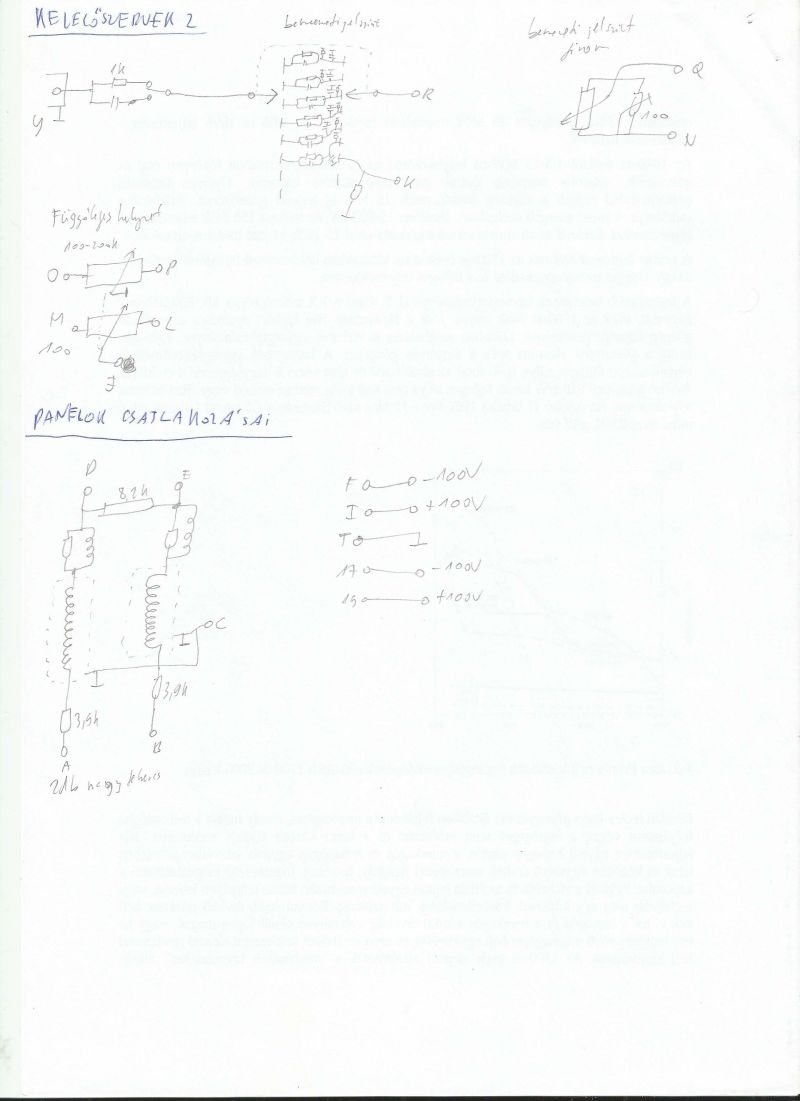 KELELŐSZERVEK 2
bemeneti jelszint
bemeneti jelszint
finom
1k
Y
R
K
Q
100
N
Függőleges helyzet
100-200k
O
P
M
L
100
J
PANELOK CSATLAKOZÁSAI
D
E
8,2k
C
3,9k
3,9k
A
B
2 db nagy fehéres
F -100V
I +100V
T
17 -100V
19 +100V